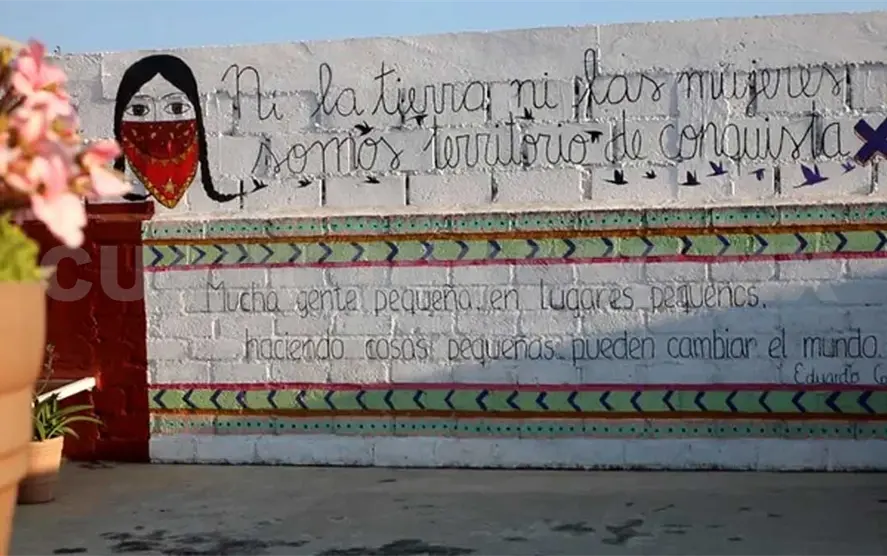 Ni la tierra ni las mujeres
somos territorio de conquista
Mucha gente pequeña en lugares pequeños,
haciendo cosas pequeñas pueden cambiar el mundo.
Eduardo